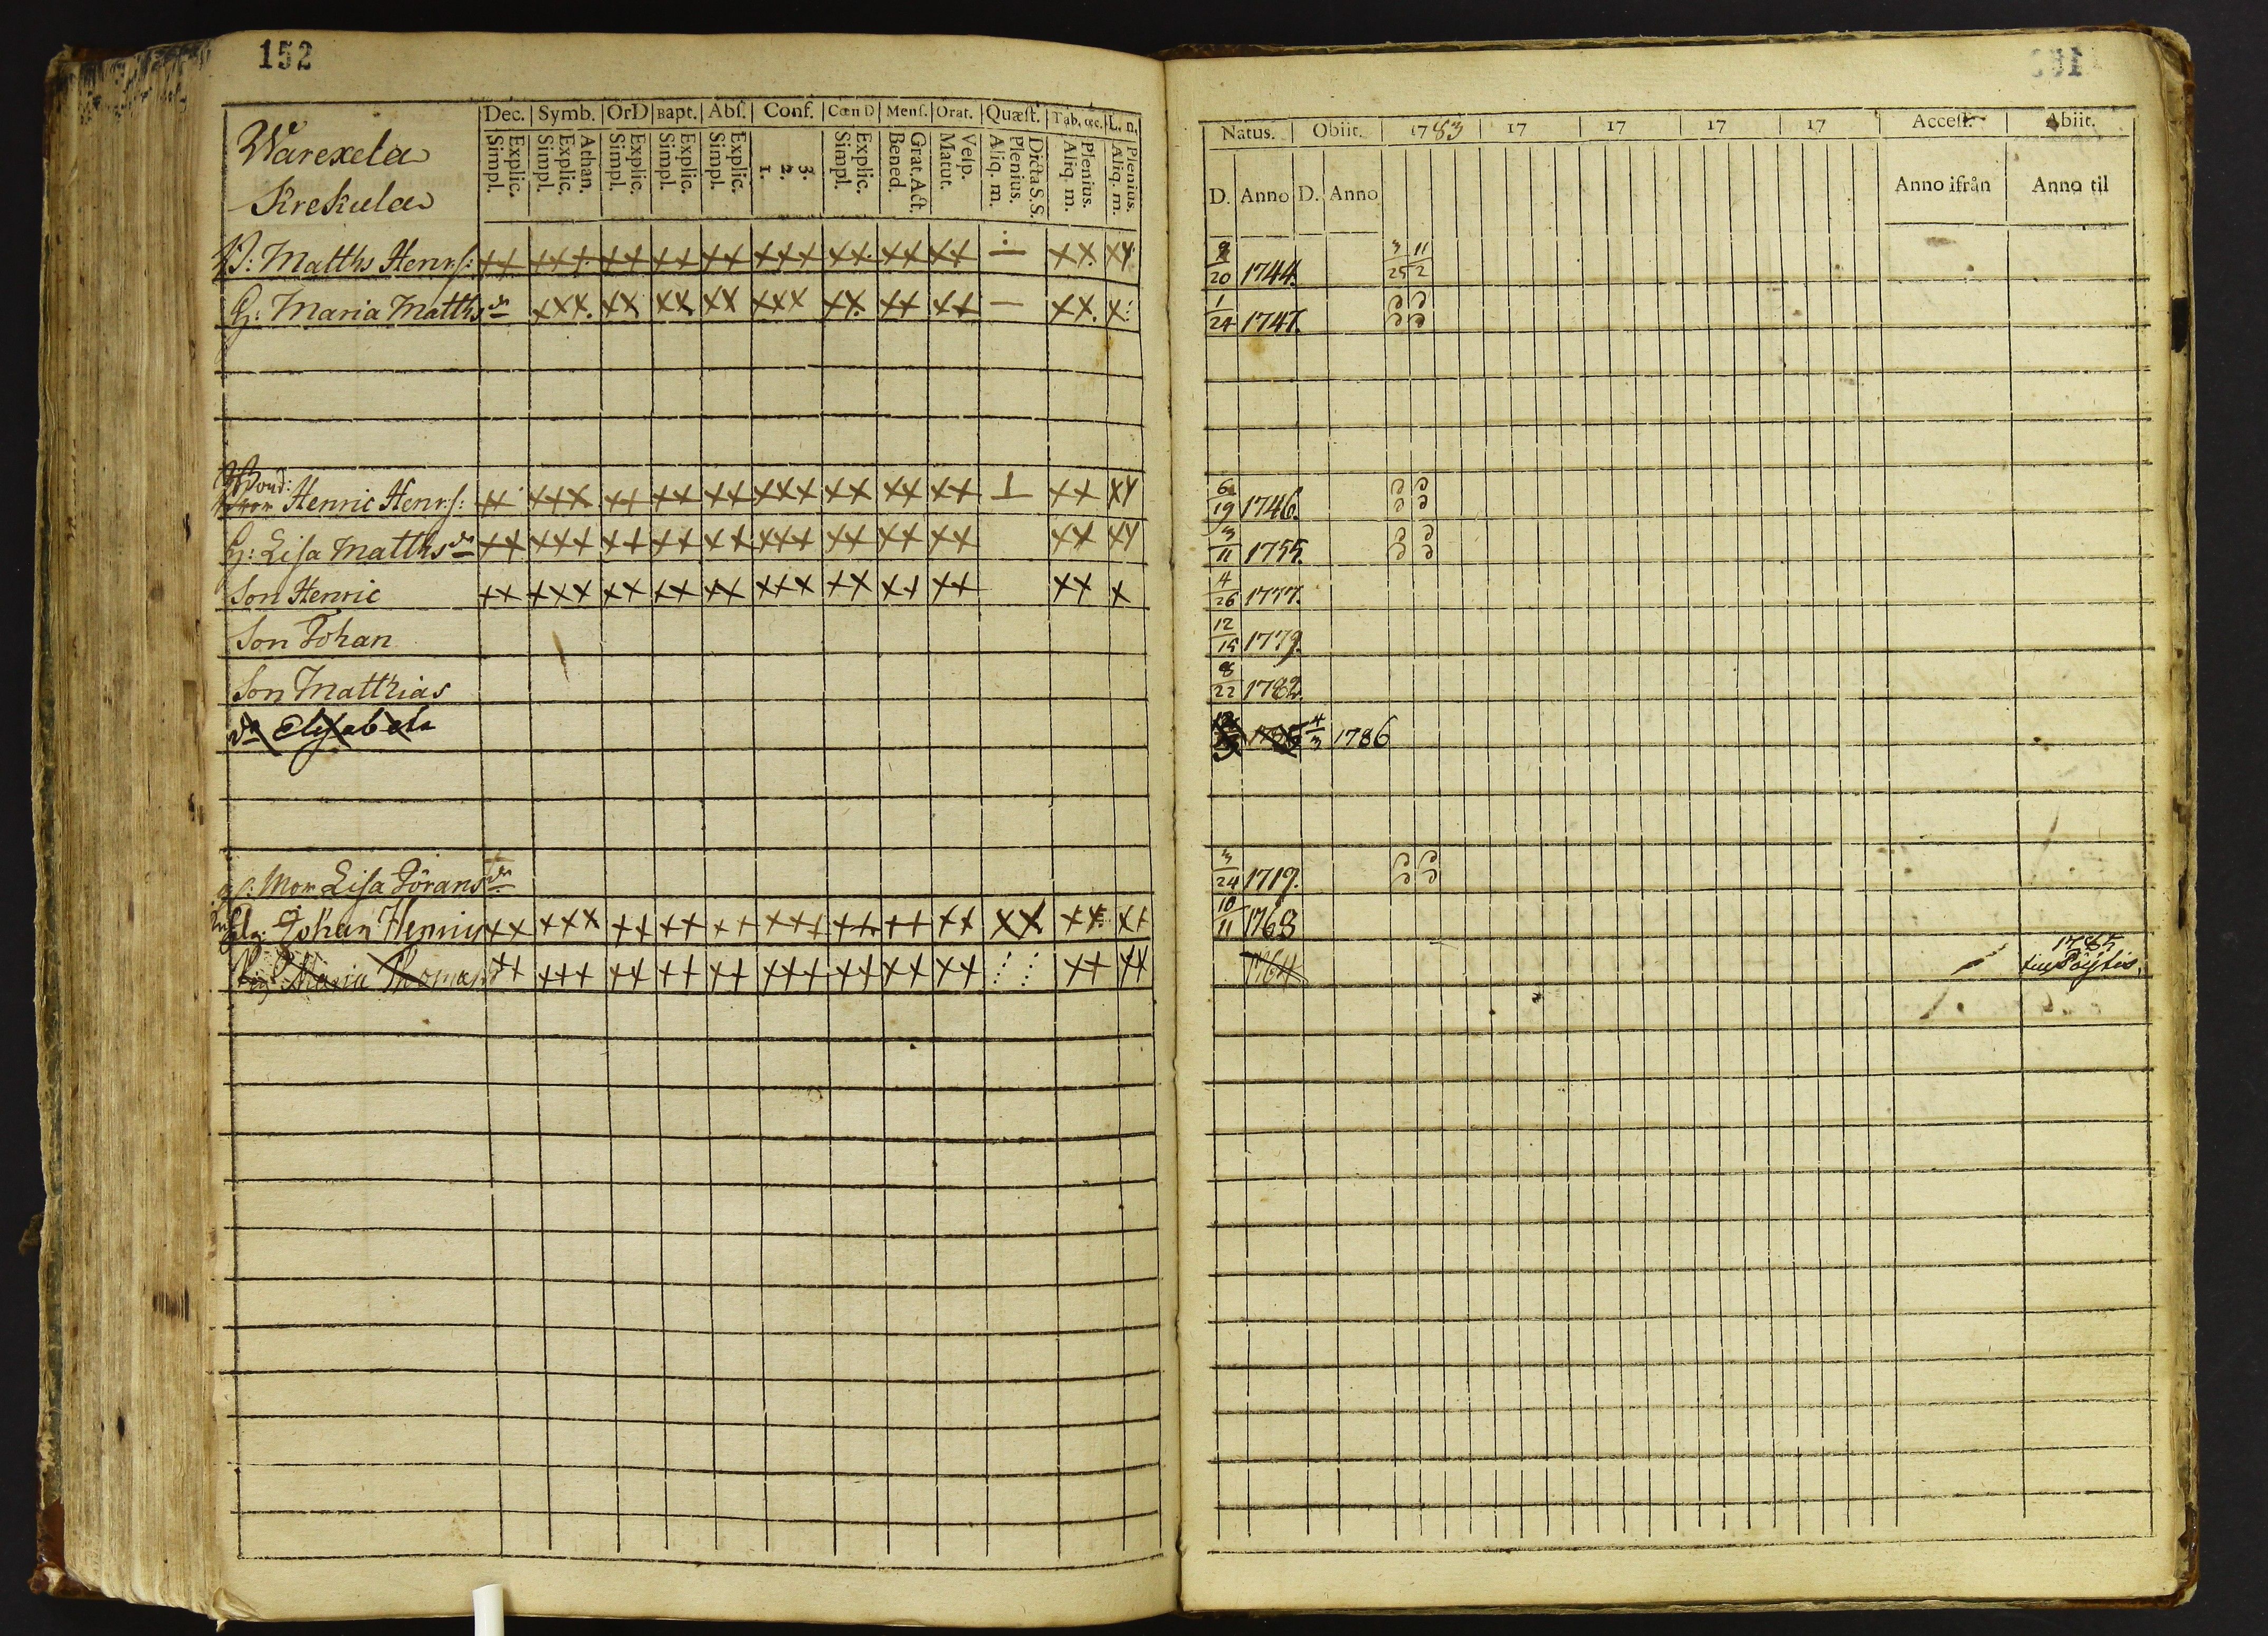 152
Dec. Symb. OrD Bapt. Abſ. Conf. Cœn D Menſ. Orat. Quæſt. Tab. œc. L. n.
Explic. Simpl. Athan. Explic. Simpl. Explic. Simpl. Explic. Simpl. Explic. Simpl. 3. 2. 1. Explic. Simpl. Grat. Act. Bened. Veſp. Matut. Dicta S.S. Plenius. Aliq. m. Plenius. Aliq. m. Plenius. Aliq. m.
Warexela
Krekula
Matths Henrs:
H: Maria Matthsdr
Henric Henrs:
H: Lisa Matthsdr
Son Henric
Son Johan
Son Matthias
dr Elisabeth
Mor Lisa Jöransdr
Johan Henrics
Maria Thomasdr
Natus. Obiit. 1783 17 17 17 17 Acceſſ. Abiit.
D. Anno D. Anno Anno ifrån Anno til
20 1744. 3 11
25 2
1
24 1747.
6
19 1746.
3
11 1755.
4
26 1777.
12
15 1779.
8
22 1782.
4
3 1786
3
24 1719.
10
11 1768
1764 1785
till Pöytis.